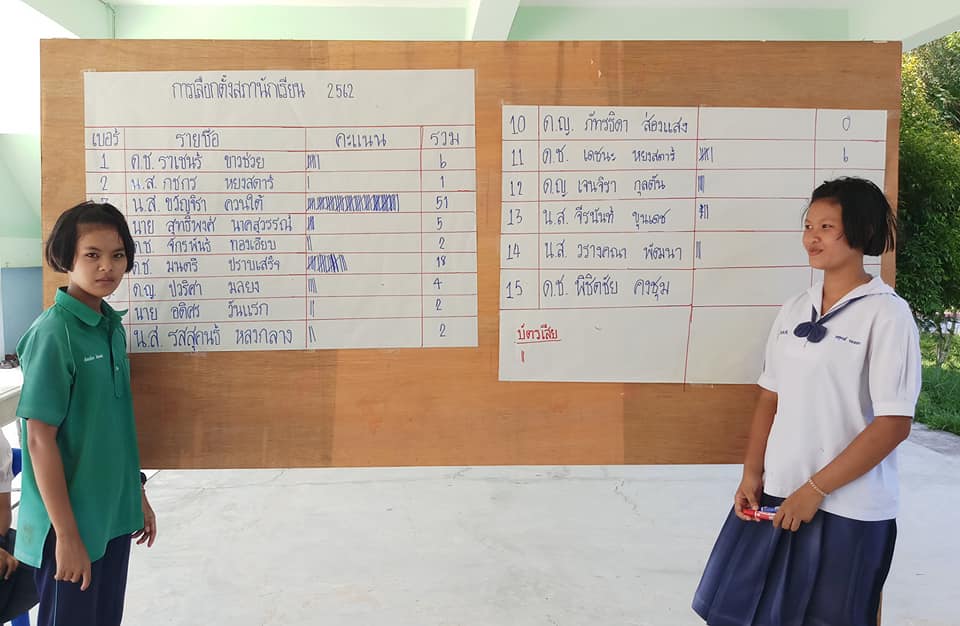 การเลือกตั้งสภานักเรียน 2562
เบอร์ รายชื่อ คะแนน รวม
1 ด.ช. ราเชนร์ ขาวช่วย 6
2 น.ส. กชกร หยงสตาร์ 1
น.ส. ขวัญจิรา ควนใต้ 51
นาย สุทธิพงศ์ นาคสุวรรณ์ 5
ด.ช. จักรพันธ์ ทองเอียบ 2
ด.ช. มนตรี ปราบเสร็จ 18
ด.ญ ปวริศา มลยง 4
นาย อดิศร วันแรก 2
น.ส. รสสุคนธ์ หลวกลาง 2
10 ด.ญ. ภัทรธิดา ส่องแสง 0
11 ด.ช. เดชนะ หยงสตาร์ 6
12 ด.ญ เจนจิรา กุลตัน
13 น.ส. จีรนันท์ ขุนเดช
14 น.ส. วรางคณา พัฒนา
15 ด.ช. พิชิตชัย คงชุม
บัตรเสีย